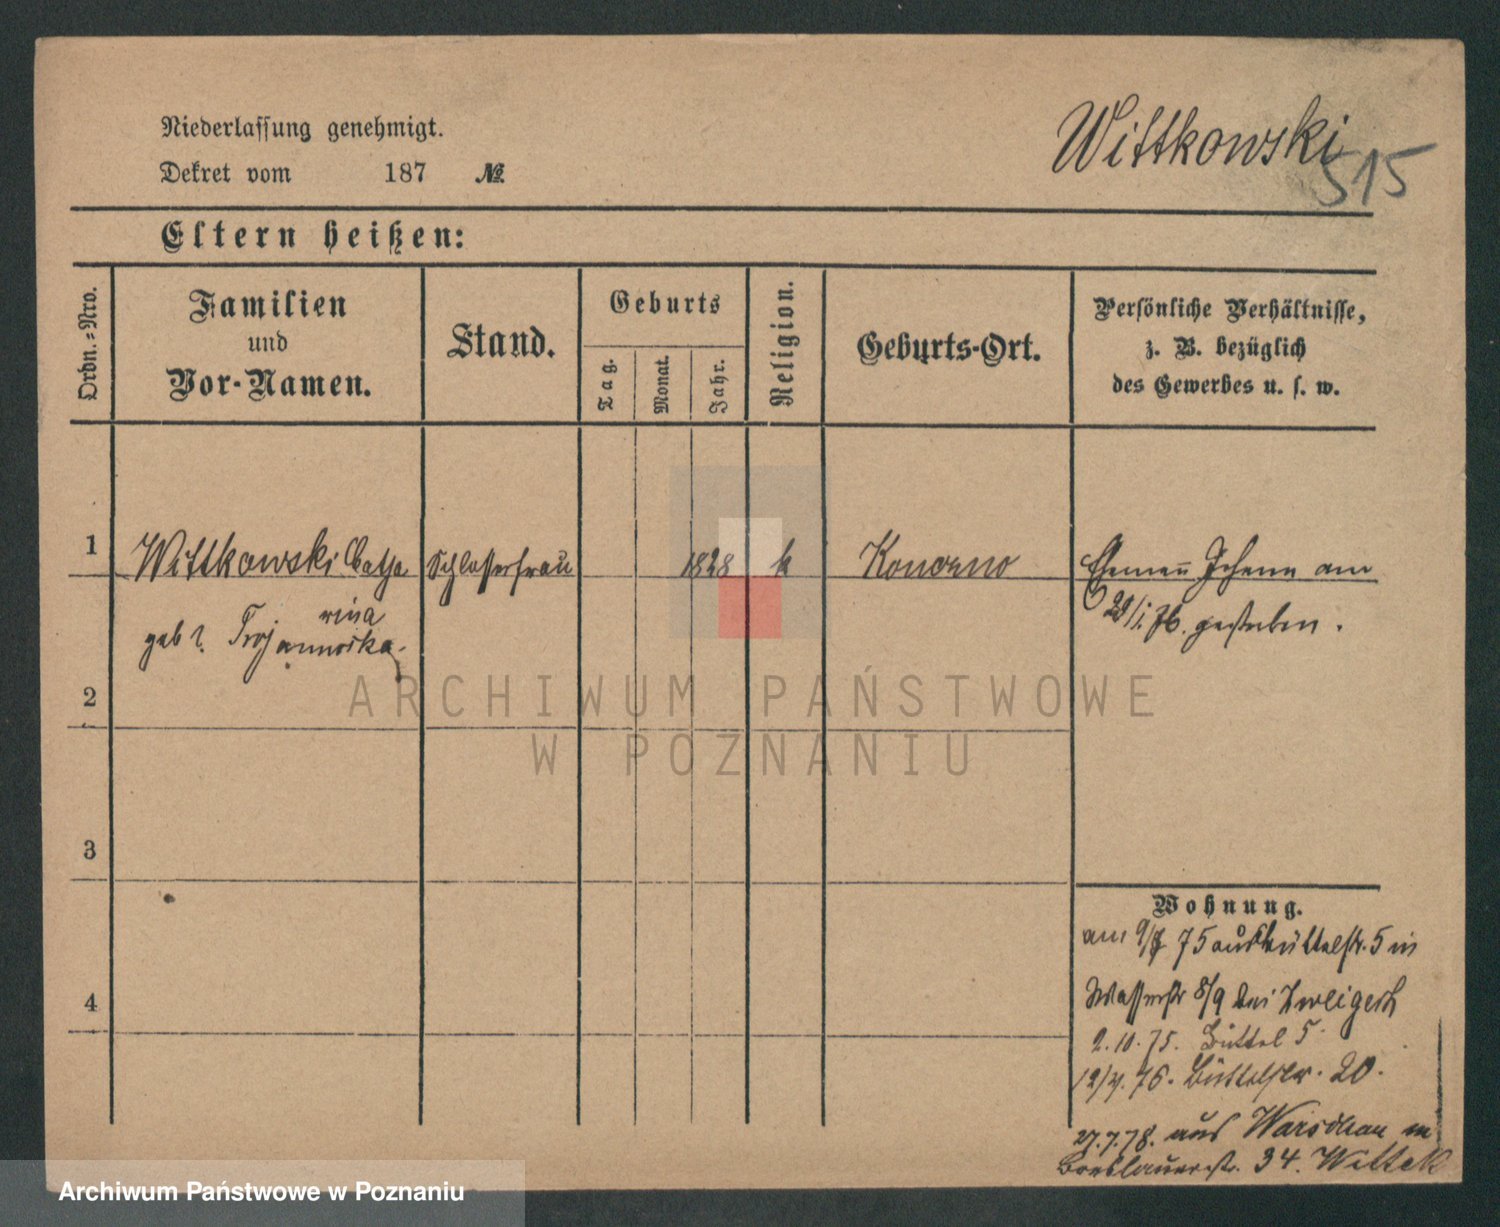 Niederlassung genehmigt.
Dekret vom 187 №
Wittkowski
515
Eltern heißen:
Ordn.-Nro.
Familien
und
Vor-Namen.
Stand.
Geburts
Tag.
Monat.
Jahr.
Religion.
Geburts-Ort.
Persönliche Verhältnisse,
z. B. bezüglich
des Gewerbes u. s. w.
1
Wittkowski Catha
rina
geb.
Schlosserfrau
1828
k
Konorno
Ehemann Johann am
29/1. 76. gestorben.
2
3
4
Wohnung.
am 9/7 75 aus Büttelstr. 5 in
Wasserstr 8/9 bei
2.10.75. Büttel 5
12/4. 76. Büttelstr. 20.
27.7.78. aus Warschau in
Breslauerstr. 34. Wittek
ARCHIWUM PAŃSTWOWE
W POZNANIU
Archiwum Państwowe w Poznaniu